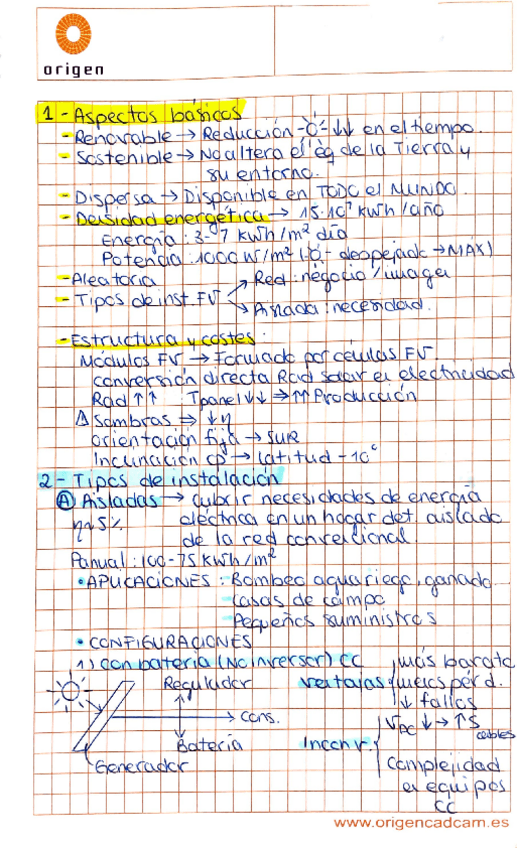 origen
1 - Aspectos básicos
- Renovable → Reducción ↓↓ en el tiempo.
- Sostenible → No altera el eq de la Tierra y
su entorno.
- Dispersa → Disponible en TODO el MUNDO.
- Densidad energética → 15·10⁷ kWh/año
Energía: 3-7 kWh/m² día
Potencia: 1000 W/m² ( despejado → MÁX)
- Aleatoria
- Tipos de inst. FV
Red: negocio / imagen
Aislada: necesidad.
- Estructura y costes:
Módulos FV → Formado por células FV.
conversión directa Rad solar en electricidad
Rad ↑↑ Tpanel ↓↓ → ↑↑ Producción
⚠ Sombras ⇒ ↓η
orientación fija → SUR
Inclinación → Latitud - 10°
2 - Tipos de instalación
Ⓐ Aisladas → cubrir necesidades de energía
η≈5% eléctrica en un hogar det aislado
de la red convencional.
Panual: 100-75 kWh/m²
• APLICACIONES: Bombeo agua riego, ganado
casas de campo
Pequeños suministros
• CONFIGURACIONES
1) con batería (No inversor) CC
Regulador
→ Cons.
Batería
Generador
ventajas
más barato
menos pérd.
↓ fallos
Inconv.
V_DC ↓ → ↑ S cables
Complejidad
en equipos
CC
www.origencadcam.es